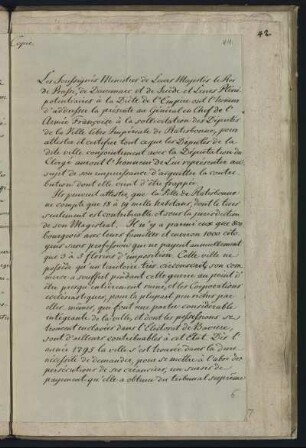 Copie.
42
Les Soussignés Ministres de Leurs Majestés le Roi
de Prusse, de Danemarc et de Suède et Leurs Pléni
potentiaires à la Diète de l'Empire ont l'honneur
d'addresser la présente au Général en Chef de l'
Armée Françoise à la sollicitation des Députés
de la Ville libre Impériale de Ratisbonne, pour
attester et certifier tout ce que les Députés de la
dite ville conjointement avec la Députation du
Clergé auront l'honneur de Lui représenter au
sujet de son impuissance d'acquitter la contri
bution dont elle vient d'être frappée.
Ils peuvent attester, que la Ville de Ratisbonne
ne compte que 18 à 19 mille habitans, dont le tiers
seulement est contribuable et sous la jurisdiction
de son Magistrat. Il n'y a parmi eux que
bourgeois avec leurs familles et environ 1000 cito
yens sans profession qui ne payent annuellement
que 3 à 5 florins d'imposition. Cette ville ne
possède qu'un territoire très circonscrit, son com
merce a souffert pendant cette guerre au point d'
être presqu'entièrement ruiné, et les Corporations
ecclésiastiques, pour la plupart peu riches par
elles mêmes, qui font une partie considérable
intégrante de la ville, et dont les possessions se
trouvent enclavées dans l'Electorat de Bavière,
sont d'ailleurs contribuables à cet Etat. Dès l'
année 1795 la ville s'est trouvée dans la dure
nécessité de demander, pour se mettre à l'abri des
persécutions de ses créanciers, un sursis de
payement qu'elle a obtenu du tribunal suprême